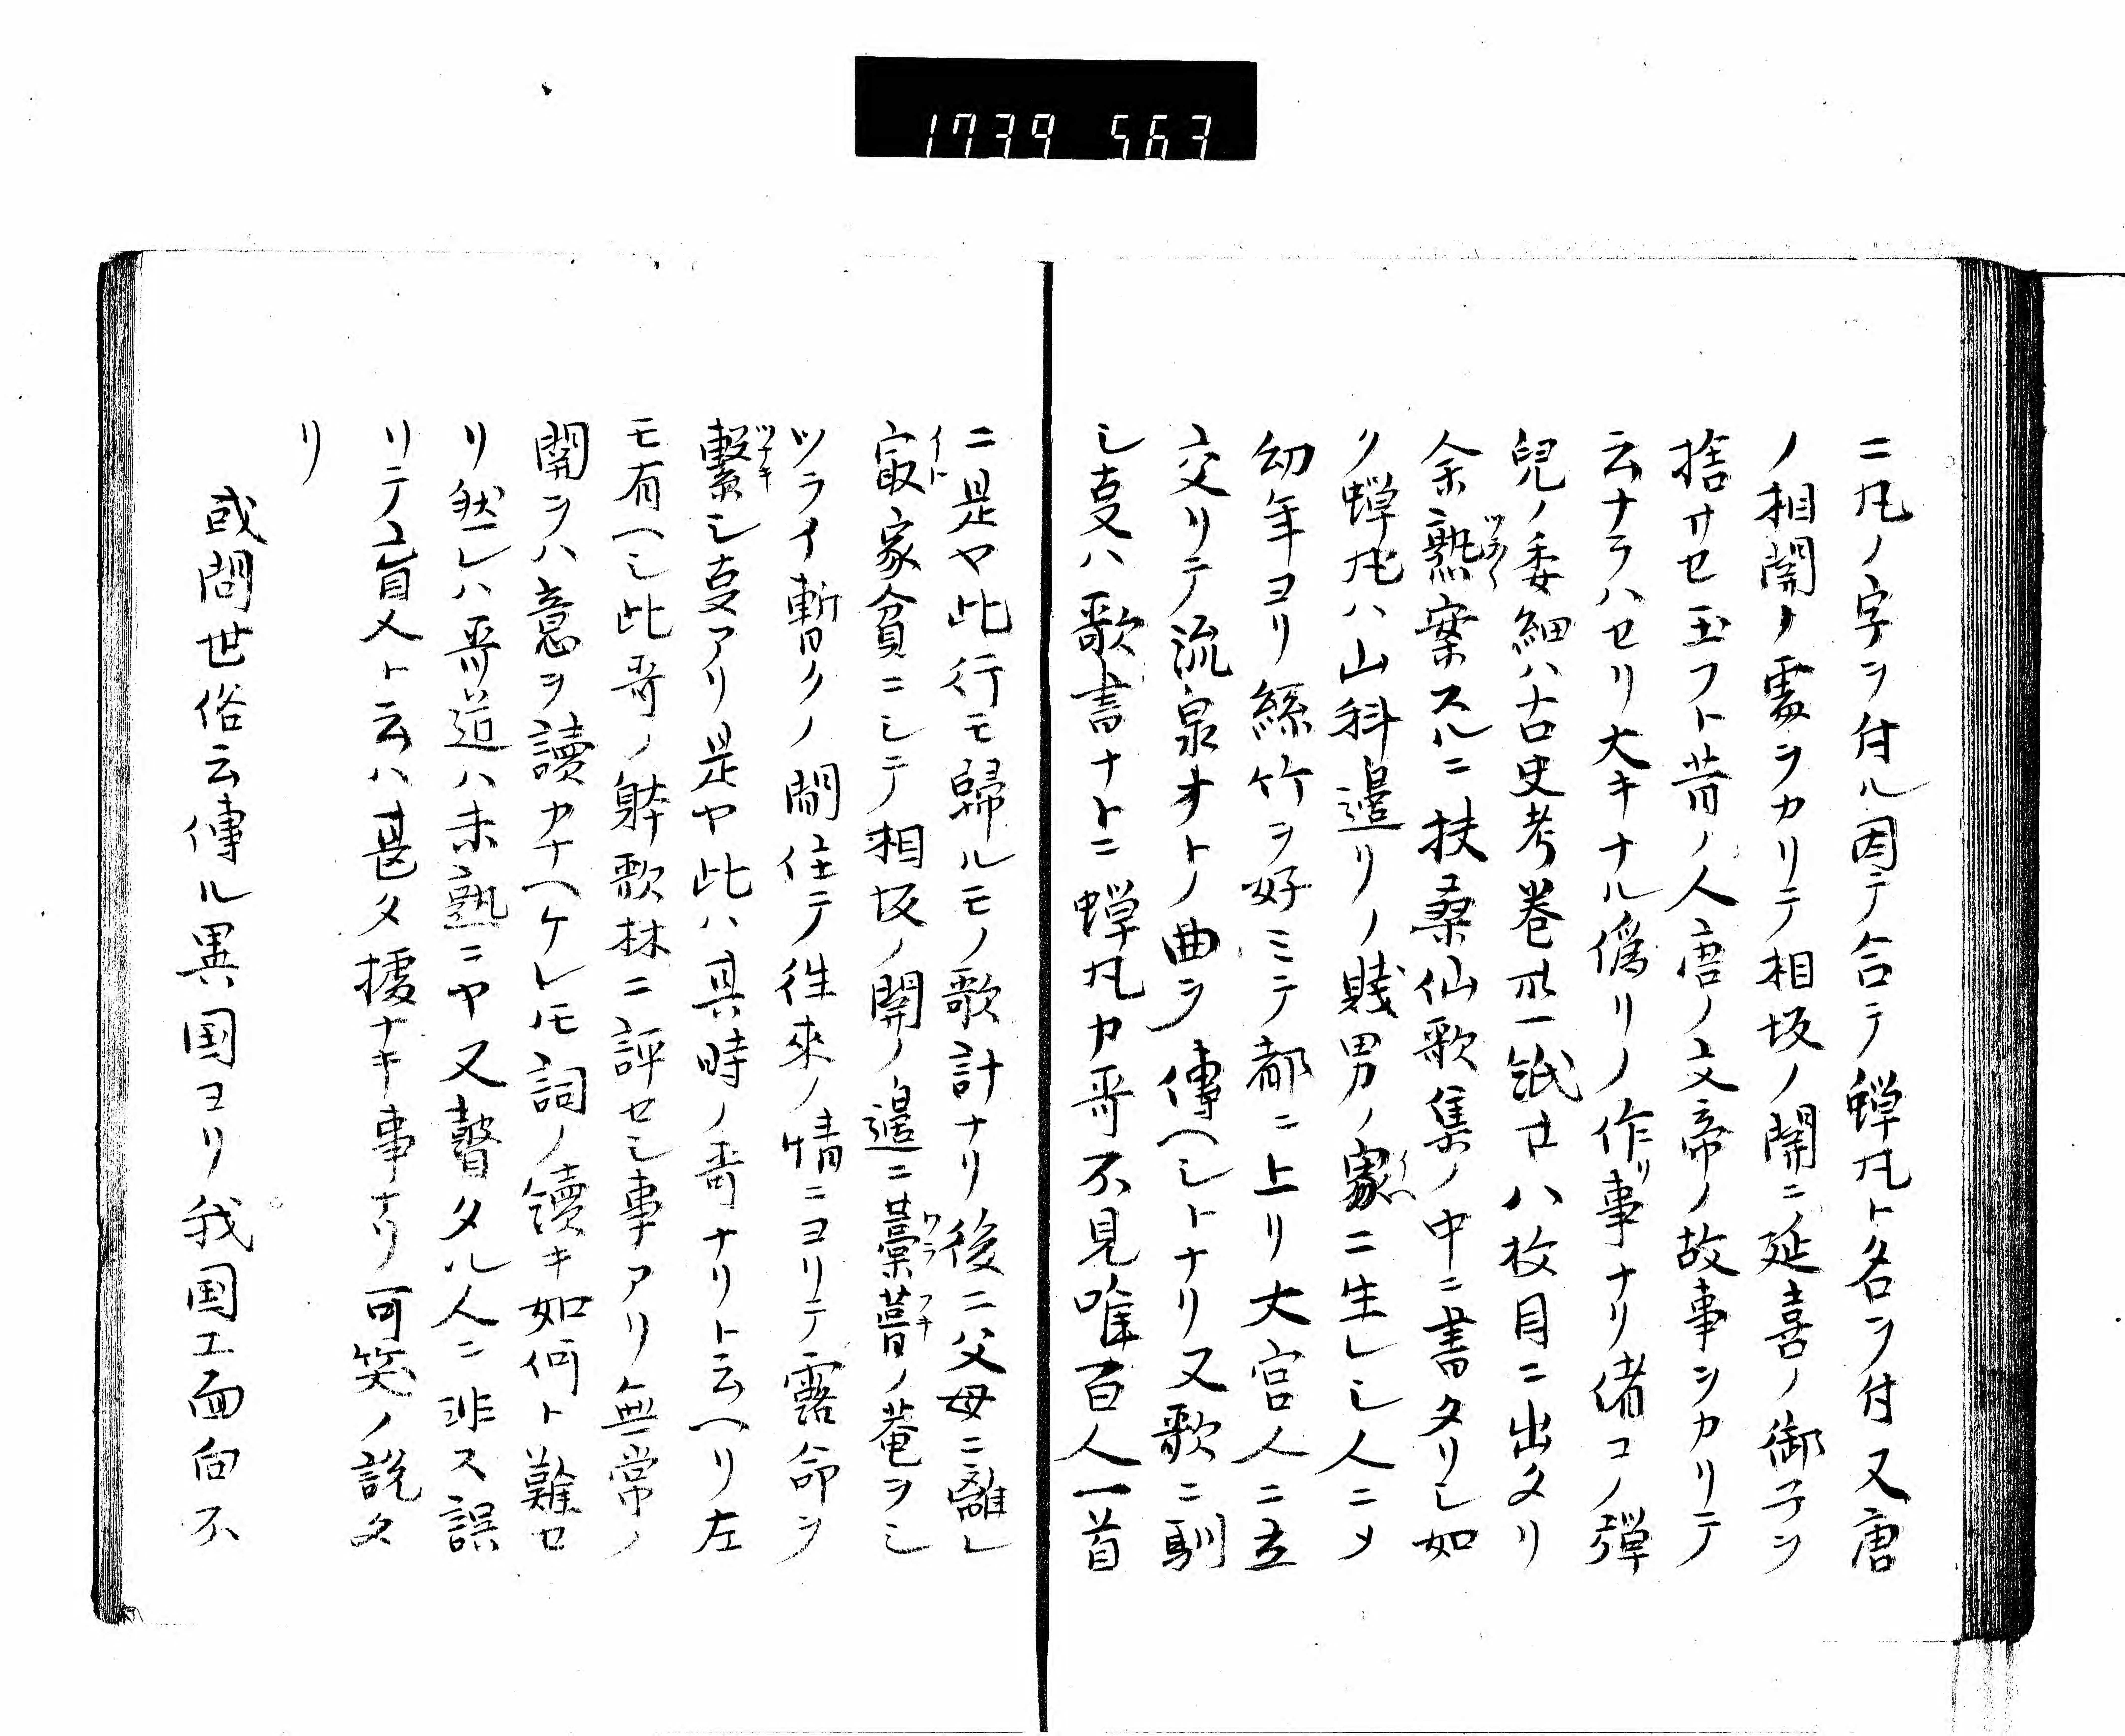 1739 563
ニ凡ノ字ヲ付ル因テ合テ蟬凡ト名ヲ付又唐
ノ相関ノ䙝ヲカリテ相坂ノ関ニ延喜ノ御子ヲ
捨サセ玉フト昔ノ人唐ノ文帝ノ故事ヲカリテ
云ナラハセリ大キナル偽リノ作リ事ナリ偖コノ弾
兒ノ委細ハ古史考巻卅一𥿻廿八枚目ニ出タリ
余熟ツラ〱案スルニ扶桑仙歌集ノ中ニ書タリシ如
ク蟬凡ハ山科邉リノ賤男ノ家イヘニ生レシ人ニメ
幼年ヨリ絲竹ヲ好ミテ都ニ上リ大宮人ニ立
交リテ流泉オトノ曲ヲ傳ヘシトナリ又歌ニ馴
シ㕝ハ歌書ナトニ蟬凡カ哥不見唯百人一首
ニ是ヤ此行モ歸ルモノ歌計ナリ後ニ父母ニ離レ
㝡イト家貧ニシテ相坂ノ関ノ邉ニ藁ワラ葺フキノ菴ヲシ
ツライ暫クノ間住テ徃來ノ情ニヨリテ露命ヲ
繫ツナキシ㕝アリ是ヤ此ハ其時ノ哥ナリト云ヘリ左
モ有ヘシ此哥ノ躰歌林ニ評セシ事アリ無常ノ
関ヲハ意ヲ讀カナヘケレ𪜈詞ノ續キ如何ト難セ
リ然レハ哥道ハ未熟ニヤ又瞽タル人ニ非ス誤
リテ盲人ト云ハ甚タ據ナキ事ナリ可笑ノ説タ
リ
或問世俗云傳ル異国ヨリ我国エ面向不